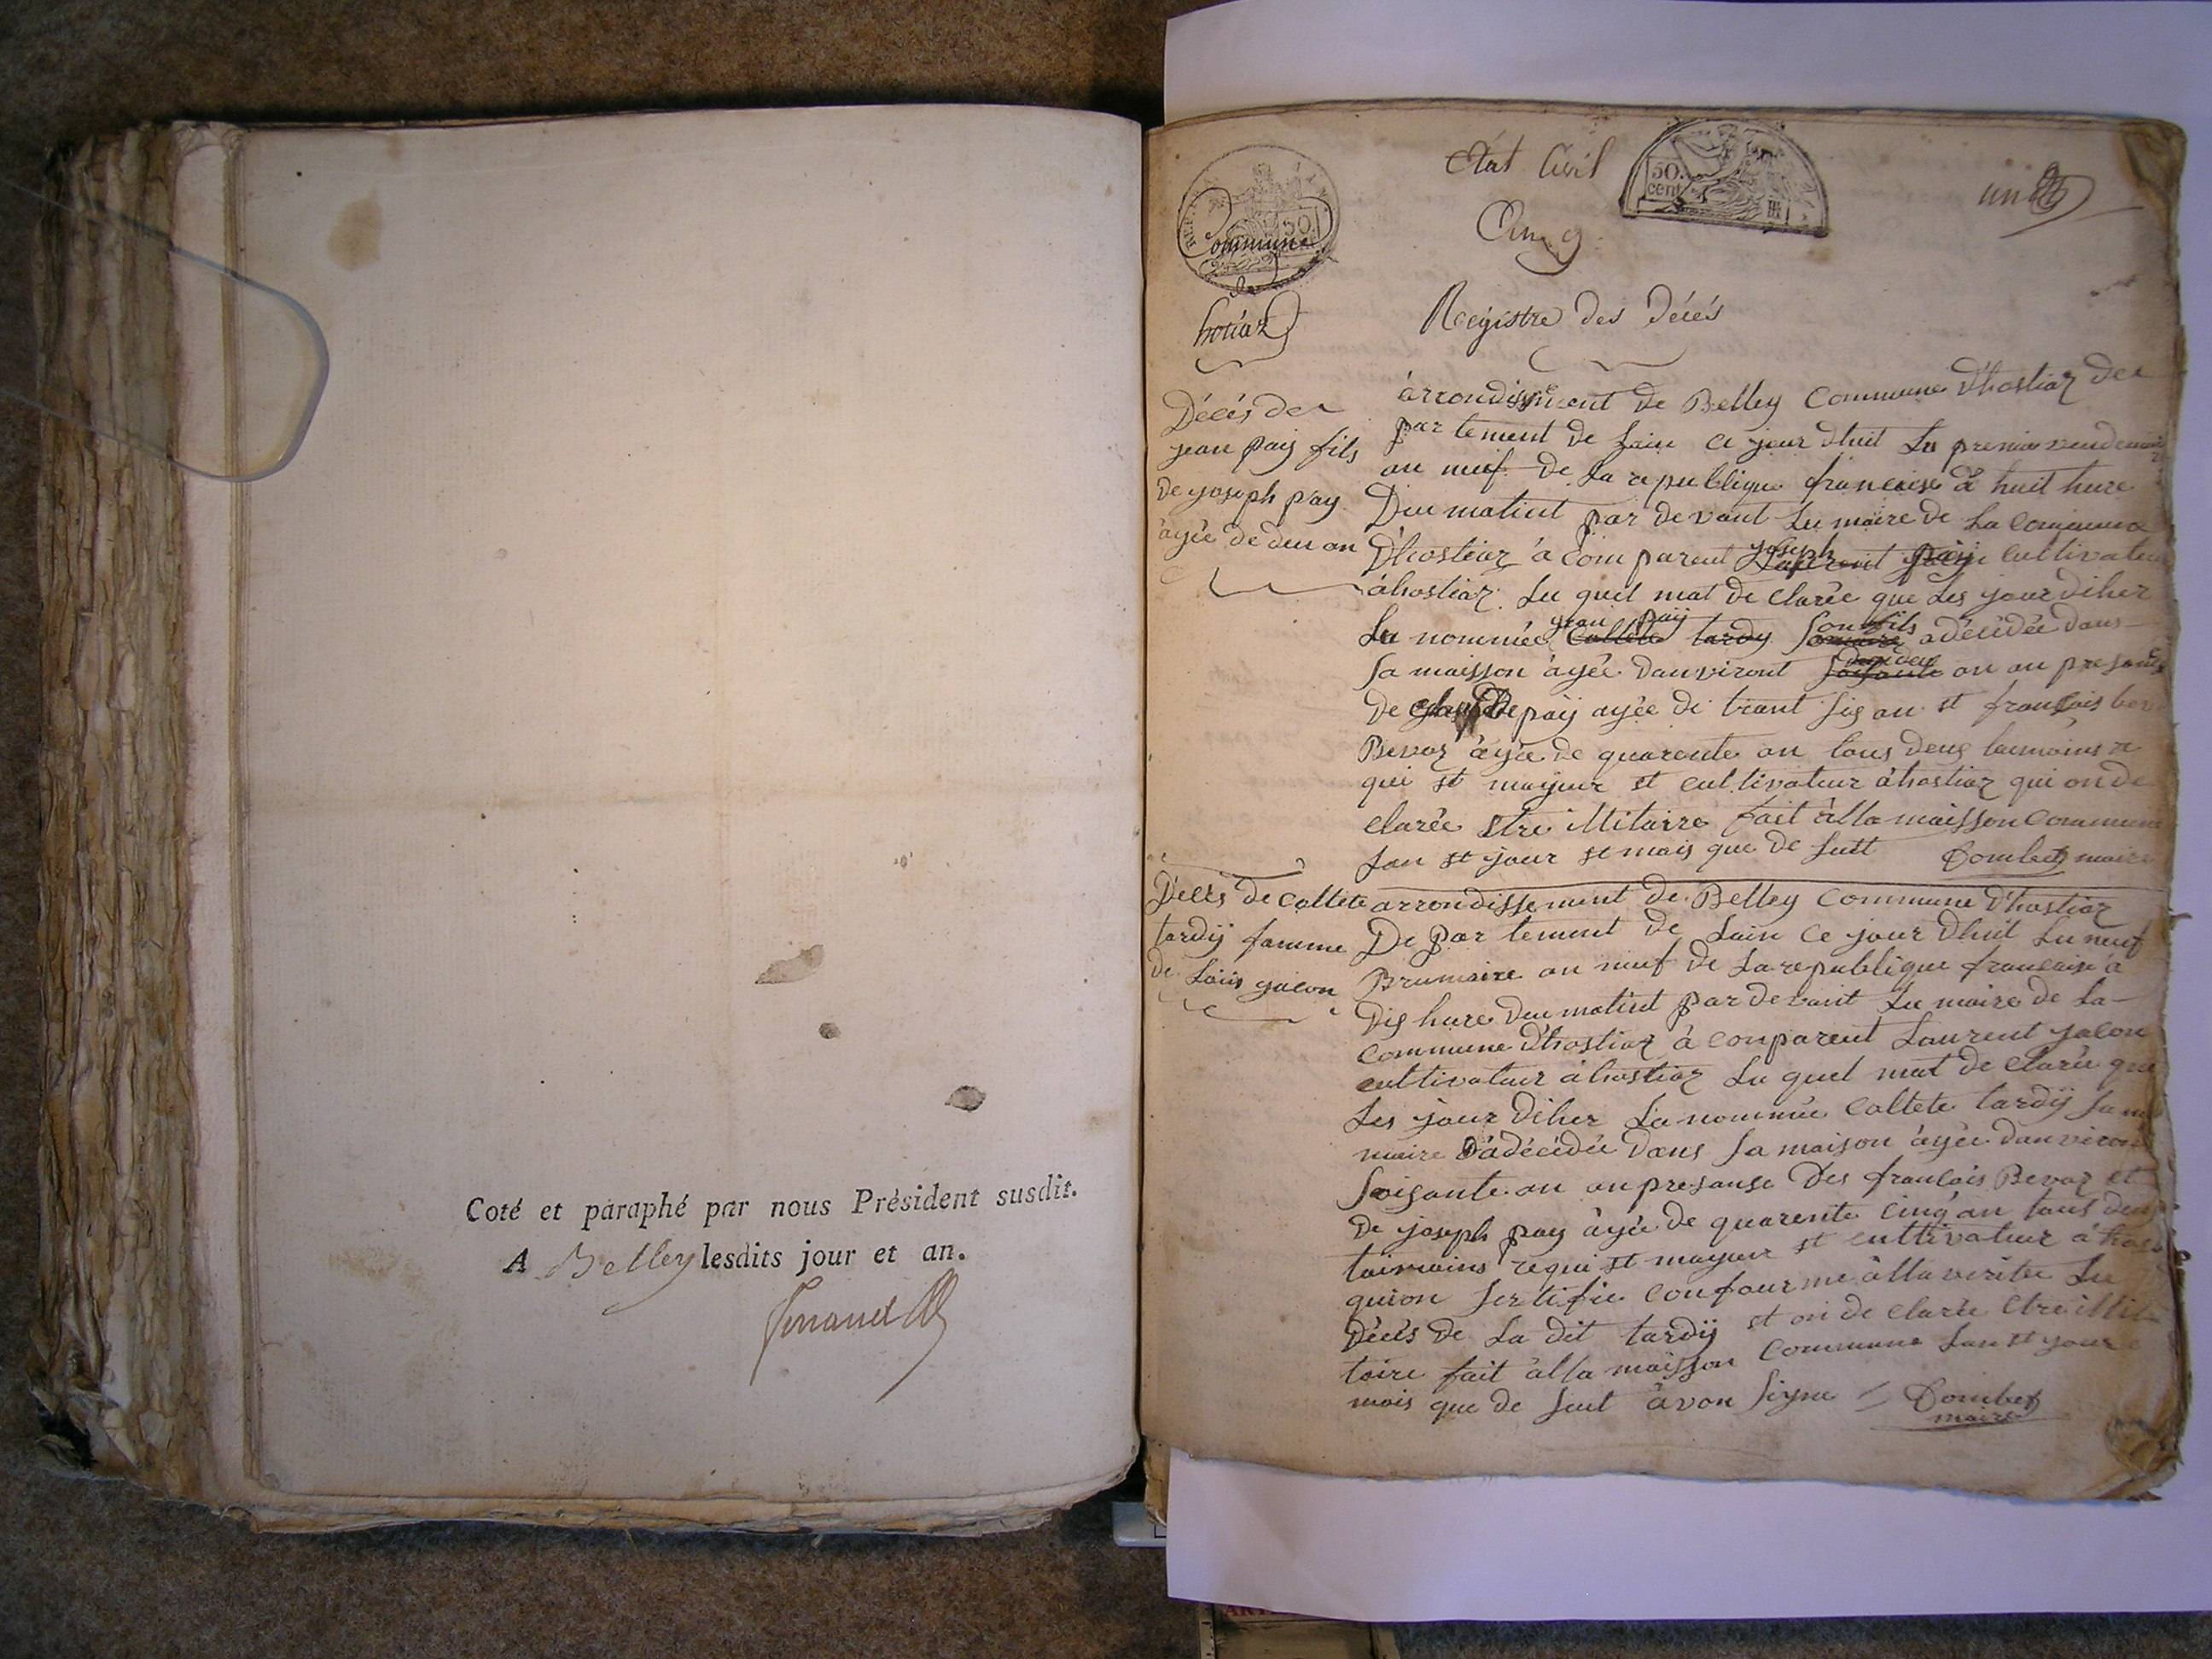 Coté et paraphé par nous Président susdit.
A Belley lesdits jour et an.
Etat Civil
50.
cent
un
Commune
de
hotiaz
Registre des Décés
Décés de
jean paij fils
de joseph pay
agée de deu an
arrondissment de Belley Commune D'hostiaz de
partement de Lain ce jour dhuit Lu premier vendemi
an neuf de La republique francaise à huit hure
Deu matint par devant Lu maire de La commune
D'hostiaz à comparent joseph Laurent paij cultivateu
áhostiaz Lu quel mat de clarée que Les jour diher
Lu nommée jean paij Coltete tardy son fils adécédée dans
sa maisson àgée danviront de deu soisante an an presan
De paij agée de trant sis an et françois bev
Bevoz àgée de quarente an tous deus temoins re
qui st mayeur et cultivateur àhostiaz qui on de
clarée etre illitairre fait àlla maisson Commune
Lan et jour et mois que de sutt Combet maire
Décés de Coltete
tardij famme
de Loüis jacon
arrondissement de Belley Commune D'hostiaz
De partement de Lain ce jour dhuit Lu neuf
Brumaire an neuf de La republique francaise à
Dis hure deu matint par devant Lu maire de La
Commune d'hostiaz à conparent Laurent jacon
cultivateur àhostiaz Lu quel mat de clarée que
Les jour diher La nommée Coltete tardij sa
maire adécédée dans sa maison àgée danviron
soisante an an presanse Des francois Bevoz et
De joseph pay àgée de quarente cinq an tous deu
taimoins requi st mayeur et cultivateur à hos
quion sertifie confourme àlla veritée Lu
Décés de La dit tardij et on de clarée etre illi
taire fait àlla maisson Commune Lan et jour
mois que de sut àvon signe Combet
maire